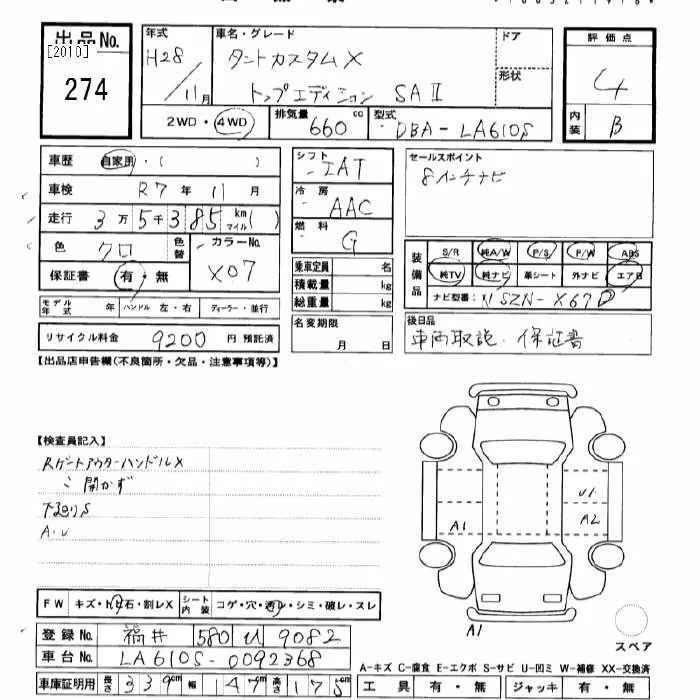 出品No.
[2010]
274
年式 H28/11月
車名・グレード
タントカスタムX
トップエディション SAⅡ
ドア
形状
評価点
4
内装 B
2WD・4WD
排気量 660 cc
型式 DBA-LA610S
車歴 自家用・( )
車検 R7年 11月
走行 3万5千385 km マイル( )
色 クロ 色替 カラーNo. X07
保証書 有・無
モデル年式 年 ハンドル 左・右 ディーラー・並行
リサイクル料金 9200円 預託済
シフト IAT
冷房 AAC
燃料 G
乗車定員 名
積載量 kg
総重量 kg
名変期限 月 日
セールスポイント
8インチナビ
装備品 S/R 純A/W P/S P/W ABS
純TV 純ナビ 革シート 外ナビ エアB
ナビ型番: NSZN-X67D
後日品
車両取説、保証書
【出品店申告欄(不良箇所・欠品・注意事項等)】
【検査員記入】
Rゲートアウターハンドル X
開かず
下回りS
A・U
A1
U1
A2
A1
スペア
FW キズ・トビ石・割レX シート内装 コゲ・穴・汚レ・シミ・破レ・スレ
登録No. 福井 580 い 9082
車台No. LA610S-0092368
車庫証明用 長さ 339cm 幅 147cm 高さ 175cm
A-キズ C-腐食 E-エクボ S-サビ U-凹ミ W-補修 XX-交換済
工具 有・無 ジャッキ 有・無